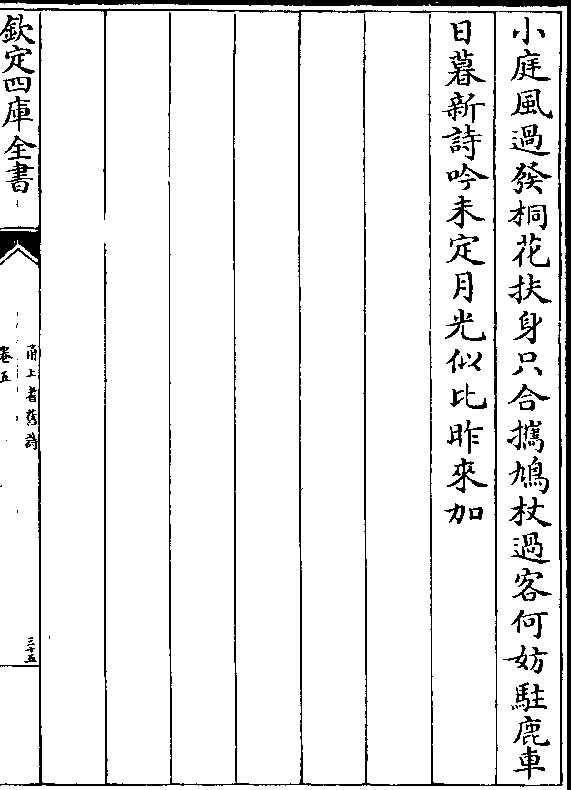 小庭風過發桐花扶身只合攜鳩杖過客何妨駐鹿車
日暮新詩吟未定月光似比昨來加
欽定四庫全書
甬上耆舊詩
卷五
三十五